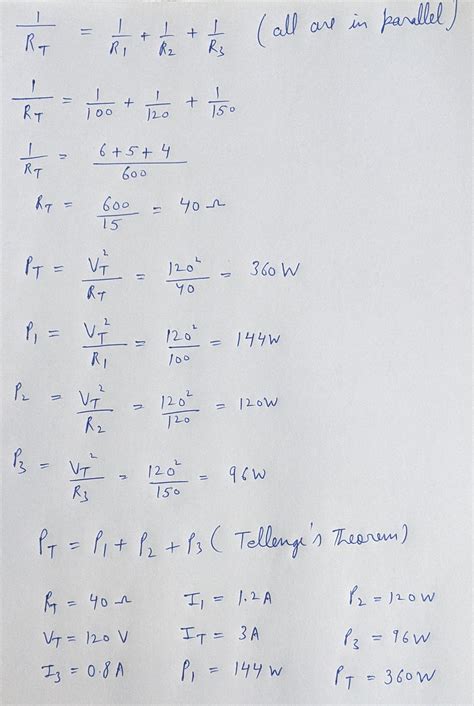 1/R_T = 1/R_1 + 1/R_2 + 1/R_3 (all are in parallel)
1/R_T = 1/100 + 1/120 + 1/150
1/R_T = (6+5+4)/600
R_T = 600/15 = 40 Ω
P_T = V_T²/R_T = 120²/40 = 360 W
P_1 = V_T²/R_1 = 120²/100 = 144W
P_2 = V_T²/R_2 = 120²/120 = 120W
P_3 = V_T²/R_3 = 120²/150 = 96W
P_T = P_1 + P_2 + P_3 (Tellenge's Theorem)
R_T = 40 Ω I_1 = 1.2A P_2 = 120W
V_T = 120 V I_T = 3A P_3 = 96W
I_3 = 0.8A P_1 = 144W P_T = 360W